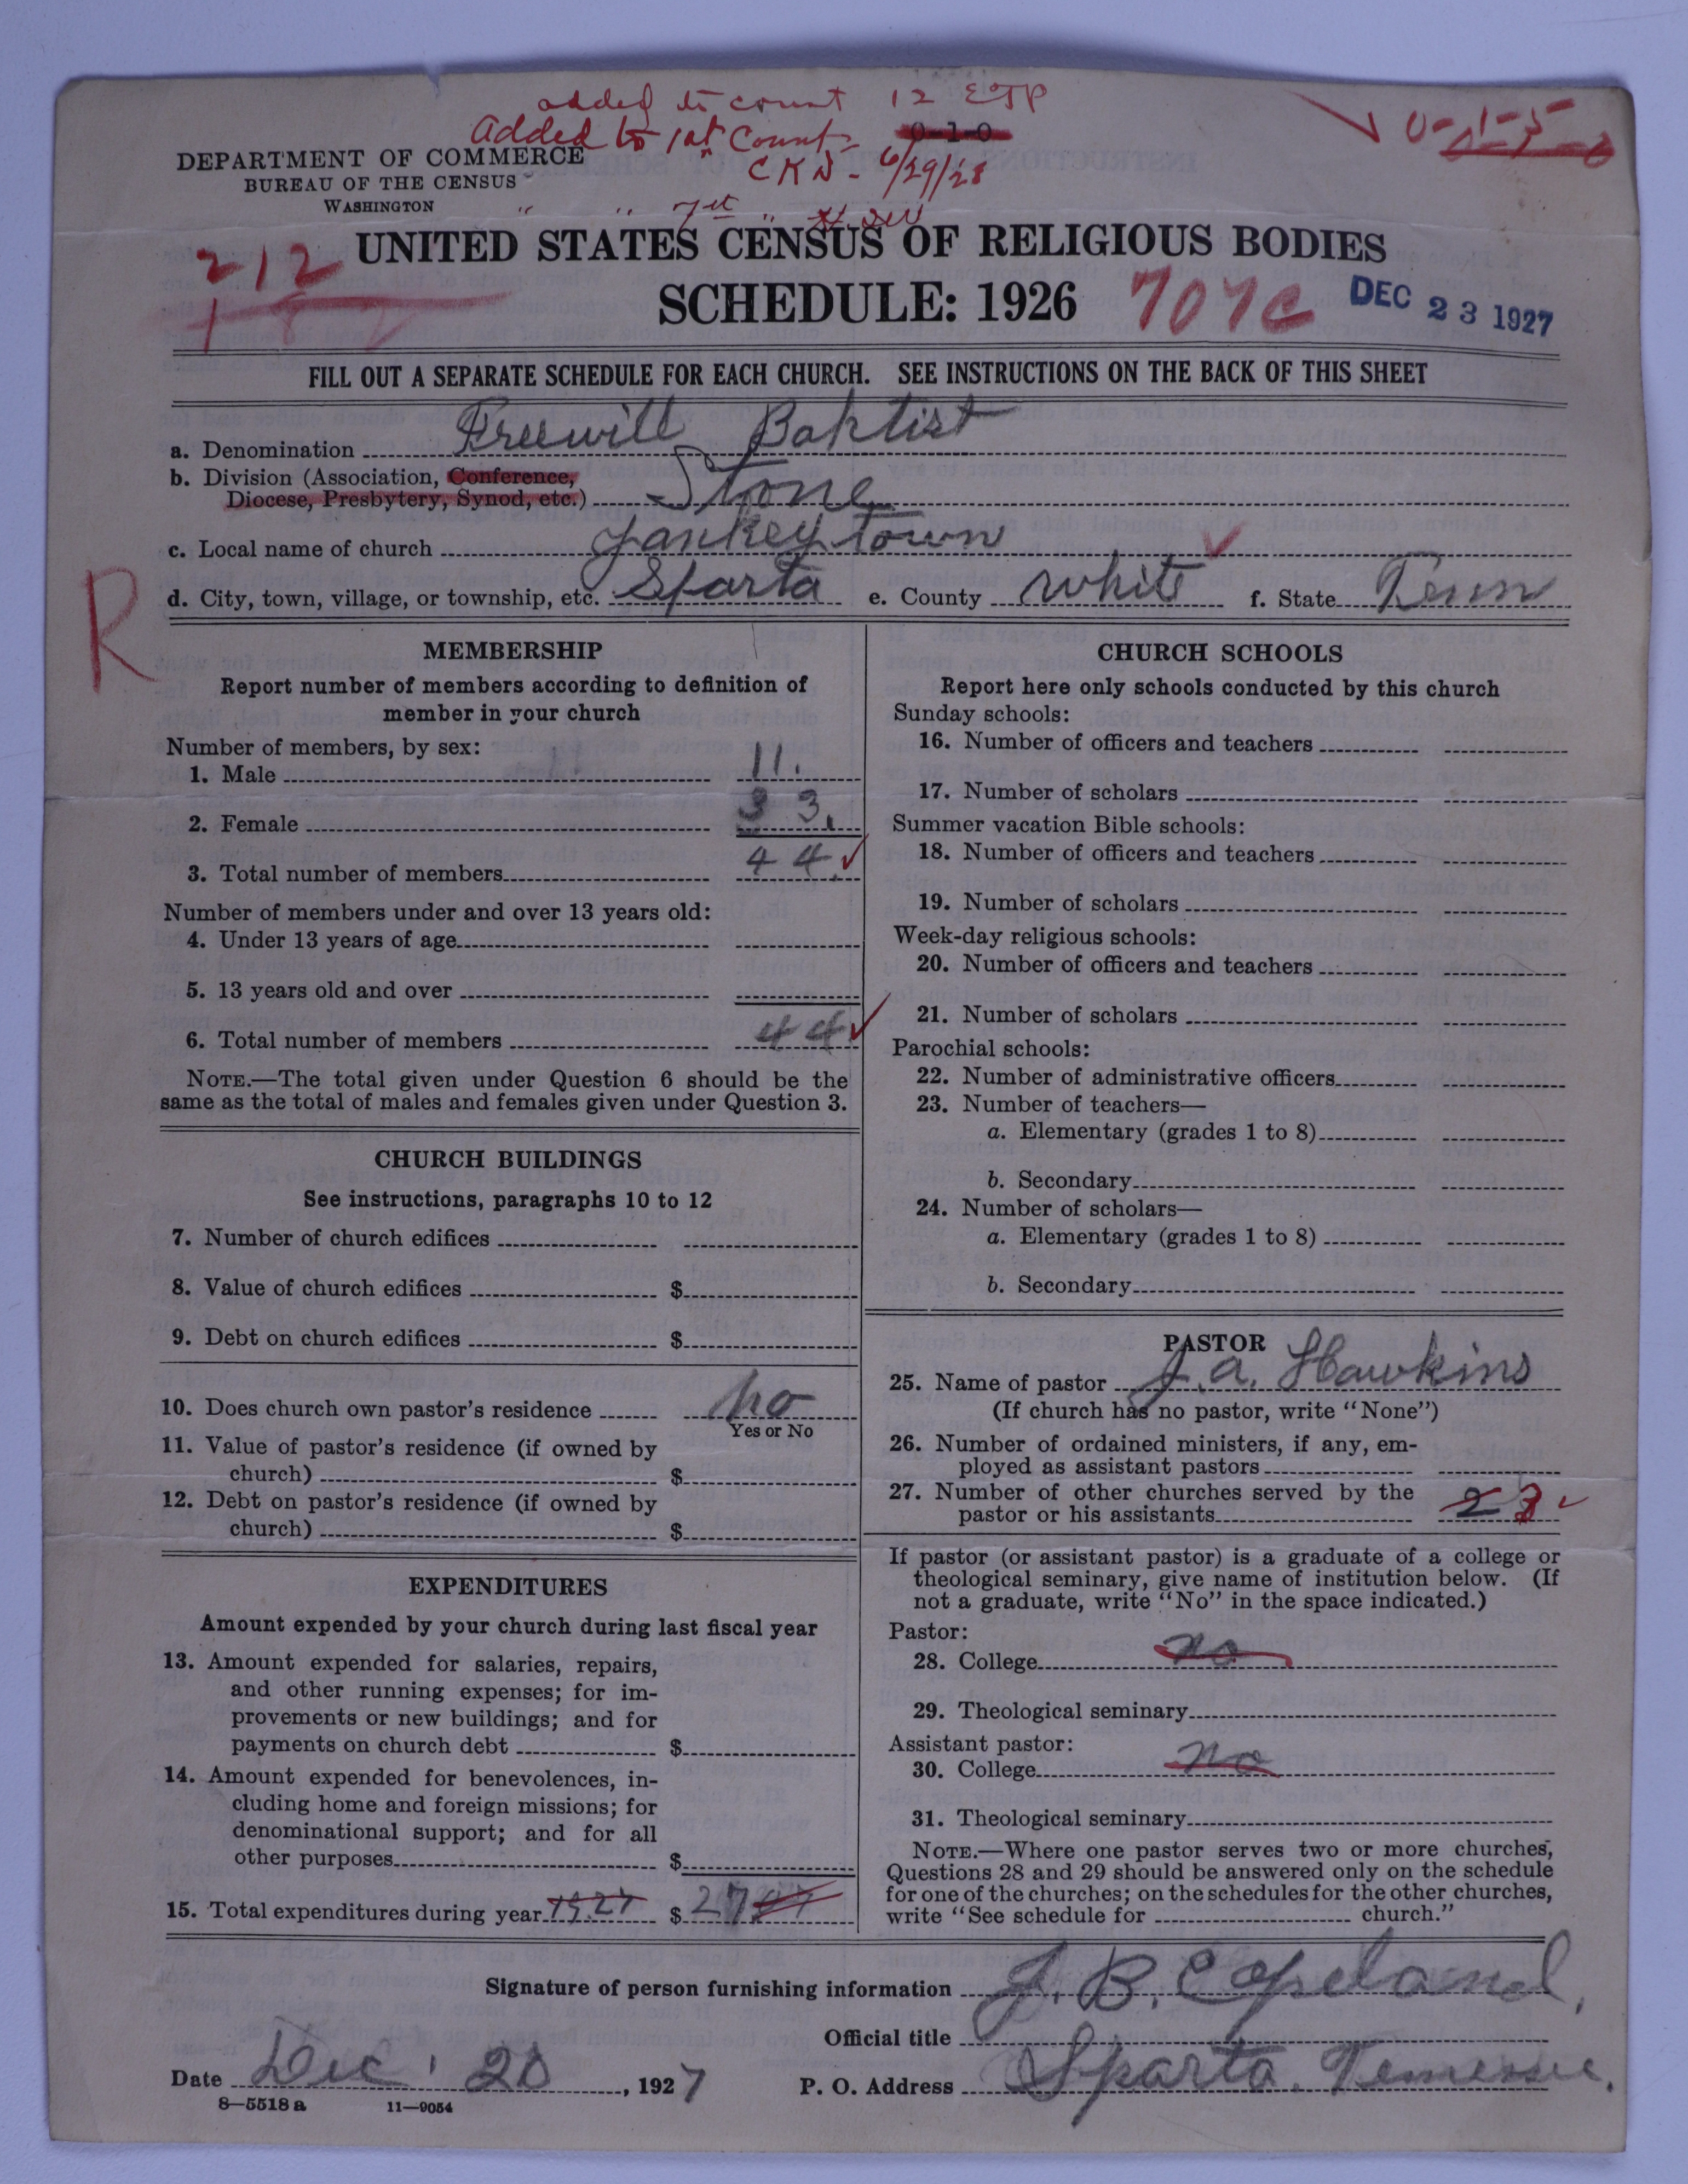 added to count 12 EJP
Added to 1st Count - 0-1-0
CKN - 6/29/28
DEPARTMENT OF COMMERCE
BUREAU OF THE CENSUS
WASHINGTON
" " 7st "
212
UNITED STATES CENSUS OF RELIGIOUS BODIES
SCHEDULE: 1926
707c
DEC 23 1927
FILL OUT A SEPARATE SCHEDULE FOR EACH CHURCH. SEE INSTRUCTIONS ON THE BACK OF THIS SHEET
a. Denomination Freewill Baptist
b. Division (Association, Conference,
Diocese, Presbytery, Synod, etc.) Stone
c. Local name of church Yankeytown
d. City, town, village, or township, etc. Sparta e. County White f. State Tenn
R
MEMBERSHIP
Report number of members according to definition of
member in your church
Number of members, by sex:
1. Male 11.
2. Female 33.
3. Total number of members 44.
Number of members under and over 13 years old:
4. Under 13 years of age
5. 13 years old and over
6. Total number of members 44
NOTE.—The total given under Question 6 should be the
same as the total of males and females given under Question 3.
CHURCH BUILDINGS
See instructions, paragraphs 10 to 12
7. Number of church edifices
8. Value of church edifices $
9. Debt on church edifices $
10. Does church own pastor's residence No
Yes or No
11. Value of pastor's residence (if owned by
church) $
12. Debt on pastor's residence (if owned by
church) $
EXPENDITURES
Amount expended by your church during last fiscal year
13. Amount expended for salaries, repairs,
and other running expenses; for im-
provements or new buildings; and for
payments on church debt $
14. Amount expended for benevolences, in-
cluding home and foreign missions; for
denominational support; and for all
other purposes $
15. Total expenditures during year 1927 $ 27
CHURCH SCHOOLS
Report here only schools conducted by this church
Sunday schools:
16. Number of officers and teachers
17. Number of scholars
Summer vacation Bible schools:
18. Number of officers and teachers
19. Number of scholars
Week-day religious schools:
20. Number of officers and teachers
21. Number of scholars
Parochial schools:
22. Number of administrative officers
23. Number of teachers—
a. Elementary (grades 1 to 8)
b. Secondary
24. Number of scholars—
a. Elementary (grades 1 to 8)
b. Secondary
PASTOR
25. Name of pastor J. A. Hawkins
(If church has no pastor, write "None")
26. Number of ordained ministers, if any, em-
ployed as assistant pastors
27. Number of other churches served by the
pastor or his assistants 2 3
If pastor (or assistant pastor) is a graduate of a college or
theological seminary, give name of institution below. (If
not a graduate, write "No" in the space indicated.)
Pastor:
28. College no
29. Theological seminary
Assistant pastor:
30. College no
31. Theological seminary
NOTE.—Where one pastor serves two or more churches,
Questions 28 and 29 should be answered only on the schedule
for one of the churches; on the schedules for the other churches,
write "See schedule for church."
Signature of person furnishing information J. B. Copeland,
Official title
Date Dec. 20, 1927 P. O. Address Sparta. Tennessee.
8—5518 a 11—9054